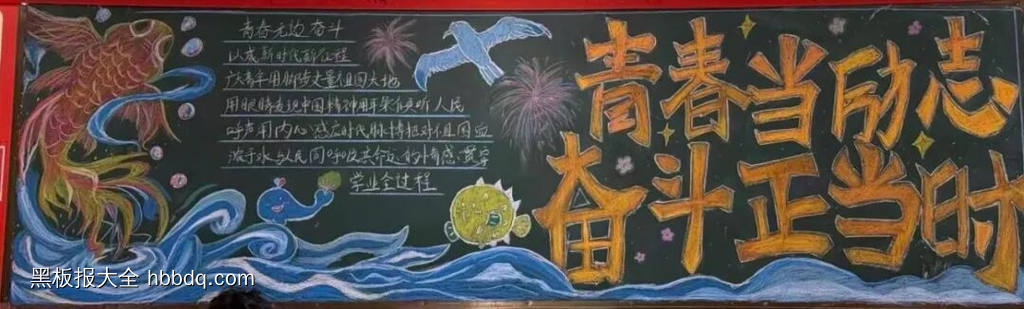 青春无边 奋斗
以成新时代新征程
广大青年用脚步丈量祖国大地
用眼睛发现中国精神用耳朵倾听人民
呼声用内心感应时代脉搏把对祖国血
浓于水与人民同呼吸共命运的情感贯穿
学业全过程
青春当励志
奋斗正当时
黑板报大全 hbbdq.com